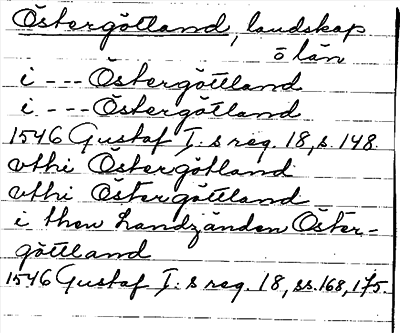 Östergötland, landskap
o län
i --- Östergöttland
i --- Östergötland
1546 Gustaf I:s reg. 18, s. 148.
vthi Östergötland
vthi Östergöttland
i then Landzänden Öster-
göttland
1546 Gustaf I:s reg. 18, ss. 168, 175.